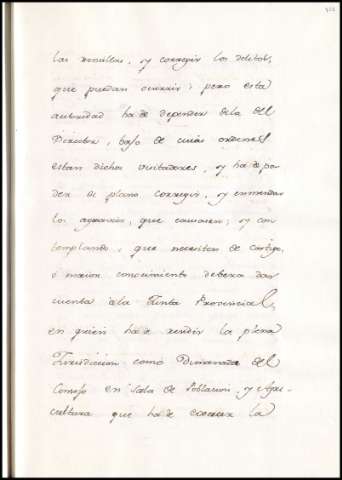 las semillas, y corregir los delitos,
que puedan ocurrir; pero esta
autoridad ha de depender dela del
Director, bajo de cuias ordenes
estan dichos visitadores, y ha de po-
der de plano corregir, y enmendar
los agravios, que causaren; y con
templando, que necesitan de castigo,
ó maior conocimiento debera dar
cuenta ála Junta Provincial,
en quien ha de residir la plena
Jurisdiccion como Dimanada del
Consejo en Sala de Poblacion, y Agri-
cultura que ha de exercer la